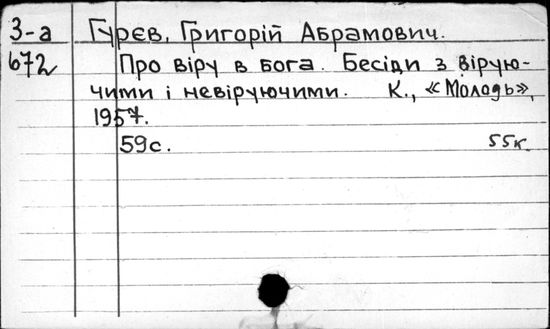 З-а Гурєв, Григорій Абрамович.
672 Про віру в бога. Бесіди з вірую-
чими і невіруючими. К., «Молодь»,
1957.
59с. 55к.